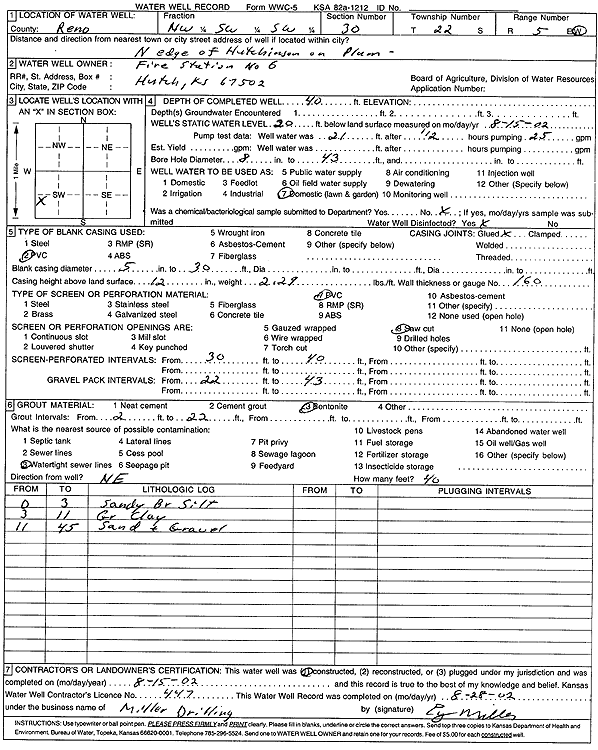 WATER WELL RECORD Form WWC-5 KSA 82a-1212 ID No.
1 LOCATION OF WATER WELL: Fraction Section Number Township Number Range Number
County: Reno NW ¼ SW ¼ SW ¼ 30 T 22 S R 5 E/W
Distance and direction from nearest town or city street address of well if located within city?
N edge of Hutchinson on Plum -
2 WATER WELL OWNER: Fire Station No 6
RR#, St. Address, Box # : Hutch, KS 67502 Board of Agriculture, Division of Water Resources
City, State, ZIP Code : Application Number:
3 LOCATE WELL'S LOCATION WITH AN "X" IN SECTION BOX:
N
NW NE
W E
SW SE
X
S
1 Mile
4 DEPTH OF COMPLETED WELL 40 ft. ELEVATION:
Depth(s) Groundwater Encountered 1. ft. 2. ft. 3. ft.
WELL'S STATIC WATER LEVEL 20 ft. below land surface measured on mo/day/yr 8-15-02
Pump test data: Well water was 21 ft. after 1/2 hours pumping 25 gpm
Est. Yield gpm: Well water was ft. after hours pumping gpm
Bore Hole Diameter 8 in. to 43 ft., and in. to ft.
WELL WATER TO BE USED AS: 5 Public water supply 8 Air conditioning 11 Injection well
1 Domestic 3 Feedlot 6 Oil field water supply 9 Dewatering 12 Other (Specify below)
2 Irrigation 4 Industrial 7 Domestic (lawn & garden) 10 Monitoring well
Was a chemical/bacteriological sample submitted to Department? Yes No X ; If yes, mo/day/yrs sample was submitted Water Well Disinfected? Yes X No
5 TYPE OF BLANK CASING USED: 5 Wrought iron 8 Concrete tile CASING JOINTS: Glued X Clamped
1 Steel 3 RMP (SR) 6 Asbestos-Cement 9 Other (specify below) Welded
2 PVC 4 ABS 7 Fiberglass Threaded
Blank casing diameter 5 in. to 30 ft., Dia in. to ft., Dia in. to ft.
Casing height above land surface 12 in., weight 2.29 lbs./ft. Wall thickness or gauge No. 160
TYPE OF SCREEN OR PERFORATION MATERIAL: 7 PVC 10 Asbestos-cement
1 Steel 3 Stainless steel 5 Fiberglass 8 RMP (SR) 11 Other (specify)
2 Brass 4 Galvanized steel 6 Concrete tile 9 ABS 12 None used (open hole)
SCREEN OR PERFORATION OPENINGS ARE: 5 Gauzed wrapped 8 Saw cut 11 None (open hole)
1 Continuous slot 3 Mill slot 6 Wire wrapped 9 Drilled holes
2 Louvered shutter 4 Key punched 7 Torch cut 10 Other (specify) ft.
SCREEN-PERFORATED INTERVALS: From 30 ft. to 40 ft., From ft. to ft.
From ft. to ft., From ft. to ft.
GRAVEL PACK INTERVALS: From 22 ft. to 43 ft., From ft. to ft.
From ft. to ft., From ft. to ft.
6 GROUT MATERIAL: 1 Neat cement 2 Cement grout 3 Bentonite 4 Other
Grout Intervals: From 2 ft. to 22 ft., From ft. to ft., From ft. to ft.
What is the nearest source of possible contamination: 10 Livestock pens 14 Abandoned water well
1 Septic tank 4 Lateral lines 7 Pit privy 11 Fuel storage 15 Oil well/Gas well
2 Sewer lines 5 Cess pool 8 Sewage lagoon 12 Fertilizer storage 16 Other (specify below)
3 Watertight sewer lines 6 Seepage pit 9 Feedyard 13 Insecticide storage
Direction from well? NE How many feet? 40
FROM TO LITHOLOGIC LOG FROM TO PLUGGING INTERVALS
0 3 Sandy Br Silt
3 11 Gr Clay
11 45 Sand & Gravel
7 CONTRACTOR'S OR LANDOWNER'S CERTIFICATION: This water well was (1) constructed, (2) reconstructed, or (3) plugged under my jurisdiction and was
completed on (mo/day/year) 8-15-02 and this record is true to the best of my knowledge and belief. Kansas
Water Well Contractor's Licence No. 447 This Water Well Record was completed on (mo/day/yr) 8-28-02
under the business name of Miller Drilling by (signature) Miller
INSTRUCTIONS: Use typewriter or ball point pen. PLEASE PRESS FIRMLY and PRINT clearly. Please fill in blanks, underline or circle the correct answers. Send top three copies to Kansas Department of Health and
Environment, Bureau of Water, Topeka, Kansas 66620-0001. Telephone 785-296-5524. Send one to WATER WELL OWNER and retain one for your records. Fee of $5.00 for each constructed well.